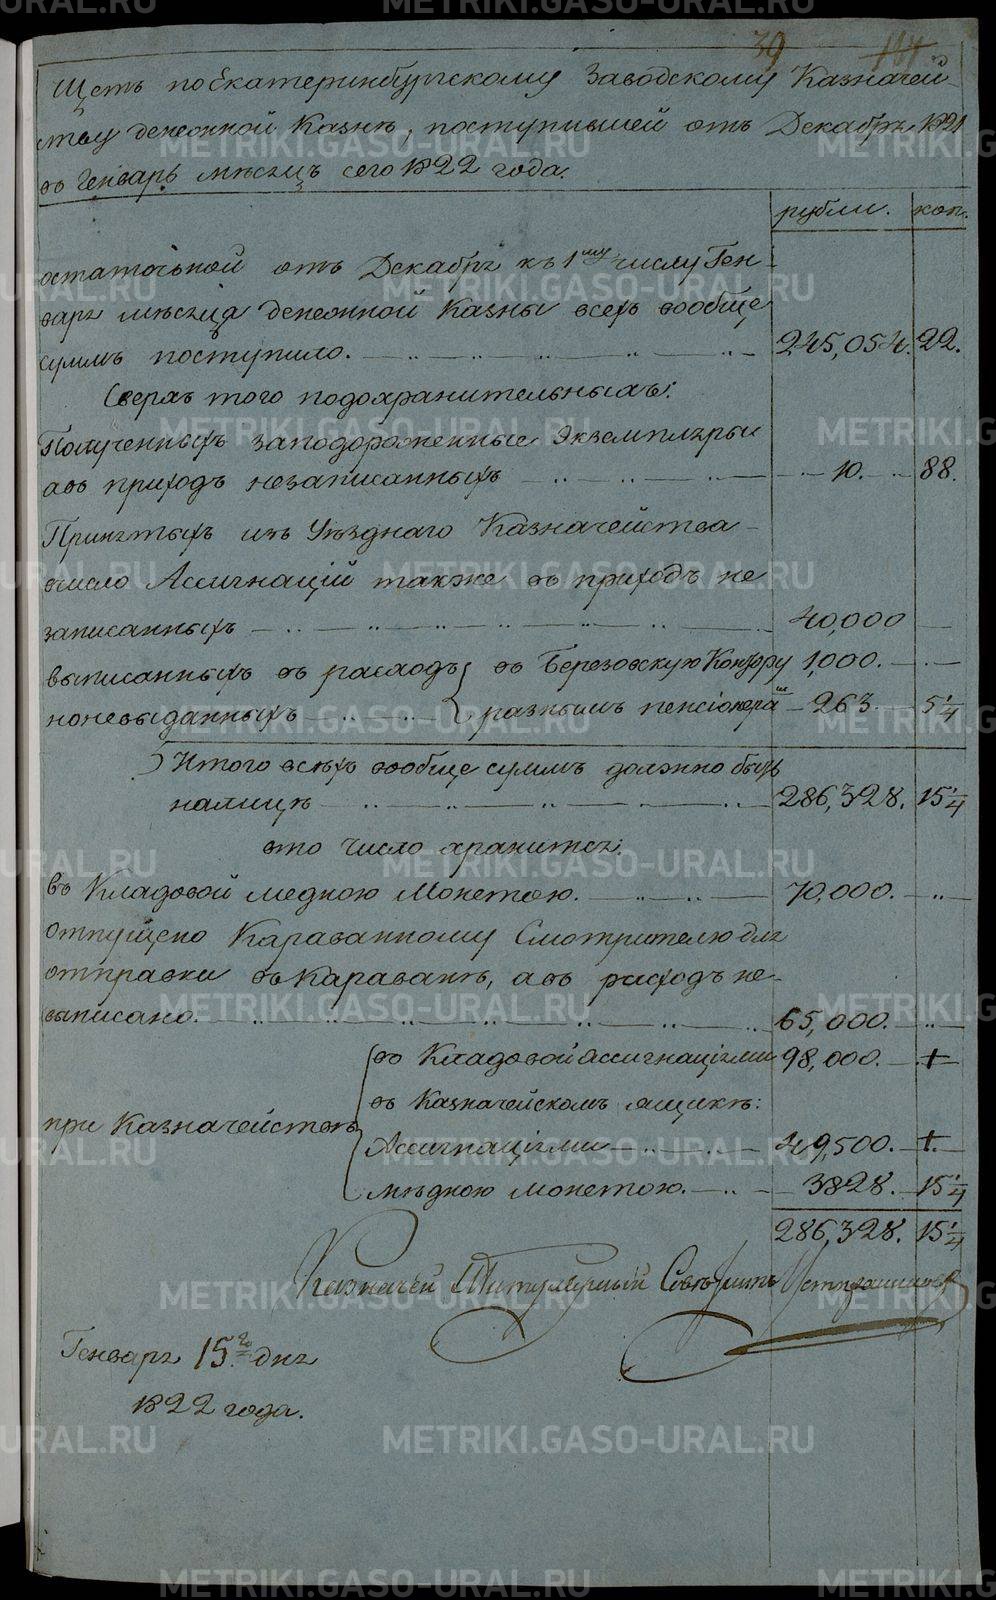 39
Щетъ по Екатеринбургскому Заводскому Казначей-
ству денежной Казнѣ, поступившей отъ Декабря 1821
въ Генварь мѣсяцъ сего 1822 года.
рубли. коп.
остаточной отъ Декабря къ 1му числу Ген-
варя мѣсяца денежной Казны всехъ вообще
суммъ поступило. 245,054. 22.
Сверхъ того подохранительныхъ:
Полученныхъ заподорожненные Экземпляры
авъ приходъ незаписанныхъ 10. 88.
Принятыхъ изъ Уѣзднаго Казначейства
вчисло Ассигнацій также въ приходъ не
записанныхъ 40,000
выписанныхъ въ расходъ въ Березовскую Контору 1,000.
ноневыданныхъ разнымъ пенсіонерамъ 263. 5 1/4
Итого всѣхъ вообще суммъ должно быть
налицѣ 286,328. 15 1/4
это число хранится:
въ Кладовой медною Монетою. 70,000.
отпущено Караванному Смотрителю для
отправки въ Караванъ, авъ расходъ не-
записано. 65,000.
при Казначействѣ
въ Кладовой Ассигнаціями 98,000. +
въ Казначейскомъ ящикѣ:
Ассигнаціями 49,500. +
мѣдною монетою. 3828. 15 1/4
286,328. 15 1/4
Казначей Титулярный Совѣтникъ
Генваря 15го дня
1822 года.
METRIKI.GASO-URAL.RU